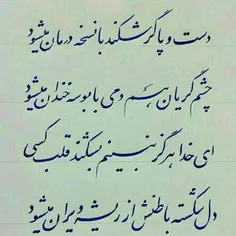 دست و پا گر شکند با نسخه درمان میشود
چشم گریان هم دمی با بوسه خندان میشود
ای خدا هرگز نبینم بشکند قلب کسی
دل شکسته باطنش از ریشه ویران میشود